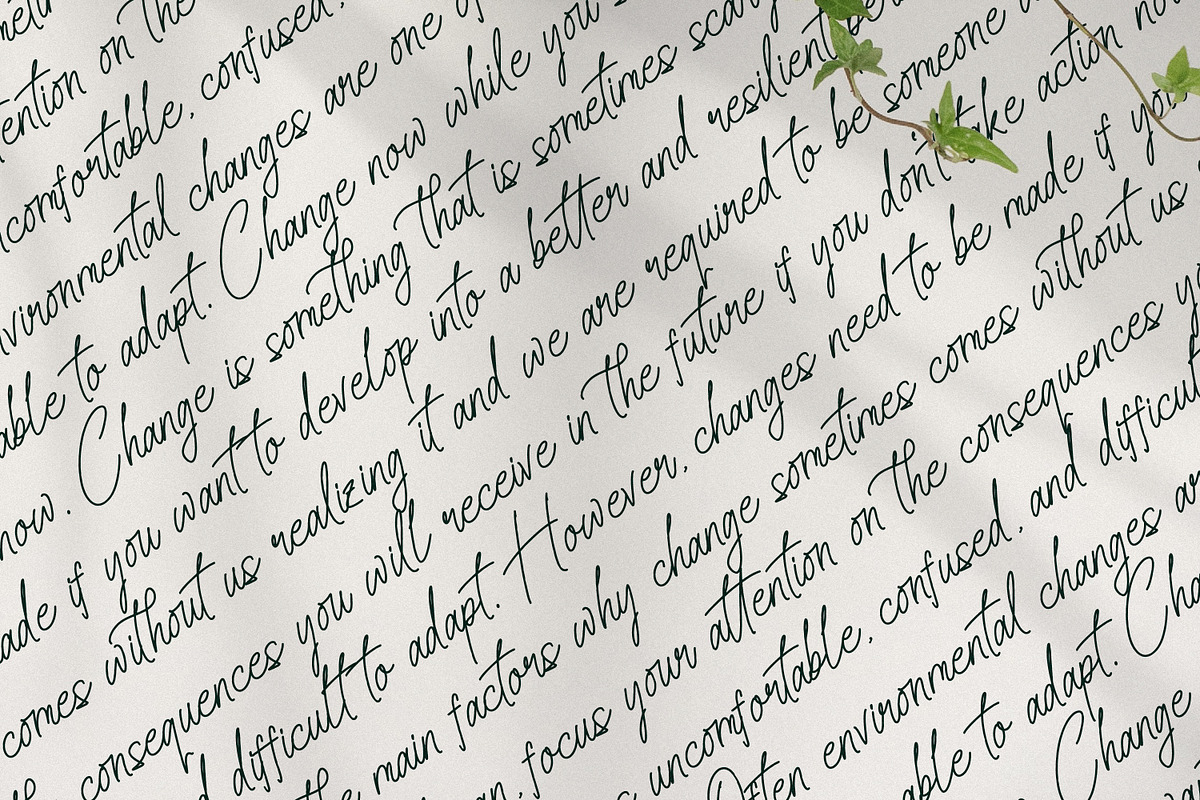 tention on the
ncomfortable, confused,
nvironmental changes are one of
able to adapt. Change now while you s
now. Change is something that is sometimes scary
ade if you want to develop into a better and resilient
comes without us realizing it and we are required to be someone
consequences you will receive in the future if you don't take action now
d difficult to adapt. However, changes need to be made if you
the main factors why change sometimes comes without us
an, focus your attention on the consequences y
s uncomfortable, confused, and difficult
Often environmental changes ar
able to adapt. Cha
Change